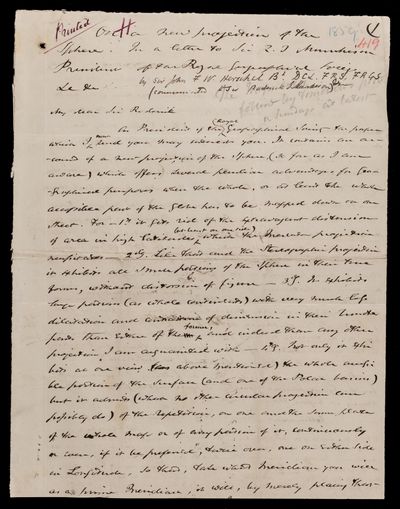 Printed
On a new projection of the
1859
419
Sphere. In a letter to Sir R. I. Murchison
President of the Royal Geographical Society
&c &c by Sir John F. W. Herschel Bt. D.C.L. F.R.S. F.R.G.S.
(communicated by Sir Roderick I. Murchison)
My dear Sir Roderick
As President of the Royal Geographical Society the paper
which I send you may interest you. It contains an ac-
count of a new projection of the Sphere (so far as I am
aware) which offers several peculiar advantages for Geo-
graphical purposes when the whole, or at least the whole
accessible part of the Globe has to be mapped down on one
sheet. For - 1st it gets rid of the extravagant distension
of area in high latitudes which the Mercator projection
necessitates - 2dly. Like that and the Stereographic projection
it exhibits all small portions of the Sphere in their true
forms, without distortion of figure - 3d. It exhibits
large portions (as whole continents) with very much less
dilatation and of dimension in their
parts than either of the former, and indeed than any other
projection I am acquainted with - 4th. Not only it exhi-
bits at one view (as above mentioned) the whole accessi-
ble portion of the surface (and one of the Polar basins)
but it admits (where no other circular projection can
possibly do) of the repetition, on one and the same plate
of the whole map or of any portion of it, continuously
or even, if it be preferred, twice over, one on either side
in Longitude, so that, take what Meridian you will
as a prime Meridian, it will, by merely placing